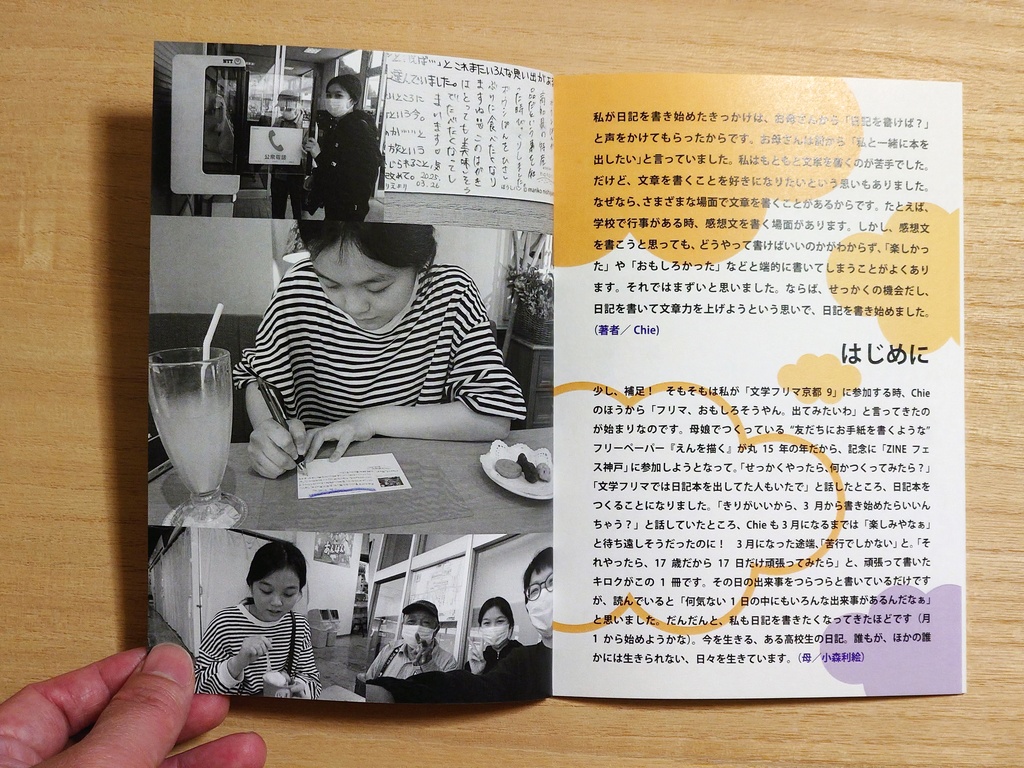 NTT
公衆電話
これまたいろんな思い出が
選んでいました。
という今。
旅という
改めて。2025
03.26
私が日記を書き始めたきっかけは、お母さんから「日記を書けば？」
と声をかけてもらったからです。お母さんは前から「私と一緒に本を
出したい」と言っていました。私はもともと文章を書くのが苦手でした。
だけど、文章を書くことを好きになりたいという思いもありました。
なぜなら、さまざまな場面で文章を書くことがあるからです。たとえば、
学校で行事がある時、感想文を書く場面があります。しかし、感想文
を書こうと思っても、どうやって書けばいいのかがわからず、「楽しかっ
た」や「おもしろかった」などと端的に書いてしまうことがよくあり
ます。それではまずいと思いました。ならば、せっかくの機会だし、
日記を書いて文章力を上げようという思いで、日記を書き始めました。
（著者／ Chie)
はじめに
少し、補足！　そもそもは私が「文学フリマ京都 9」に参加する時、Chie
のほうから「フリマ、おもしろそうやん。出てみたいわ」と言ってきたの
が始まりなのです。母娘でつくっている “友だちにお手紙を書くような”
フリーペーパー『えんを描く』が丸 15 年の年だから、記念に「ZINE フェ
ス神戸」に参加しようとなって。「せっかくやったら、何かつくってみたら？」
「文学フリマでは日記本を出してた人もいたで」と話したところ、日記本を
つくることになりました。「きりがいいから、3 月から書き始めたらいいん
ちゃう？」と話していたところ、Chie も 3 月になるまでは「楽しみやなぁ」
と待ち遠しそうだったのに！　3 月になった途端、「苦行でしかない」と。「そ
れやったら、17 歳だから 17 日だけ頑張ってみたら」と、頑張って書いた
キロクがこの 1 冊です。その日の出来事をつらつらと書いているだけです
が、読んでいると「何気ない 1 日の中にもいろんな出来事があるんだなぁ」
と思いました。だんだんと、私も日記を書きたくなってきたほどです（月
1 から始めようかな）。今を生きる、ある高校生の日記。誰もが、ほかの誰
かには生きられない、日々を生きています。（母／小森利絵）